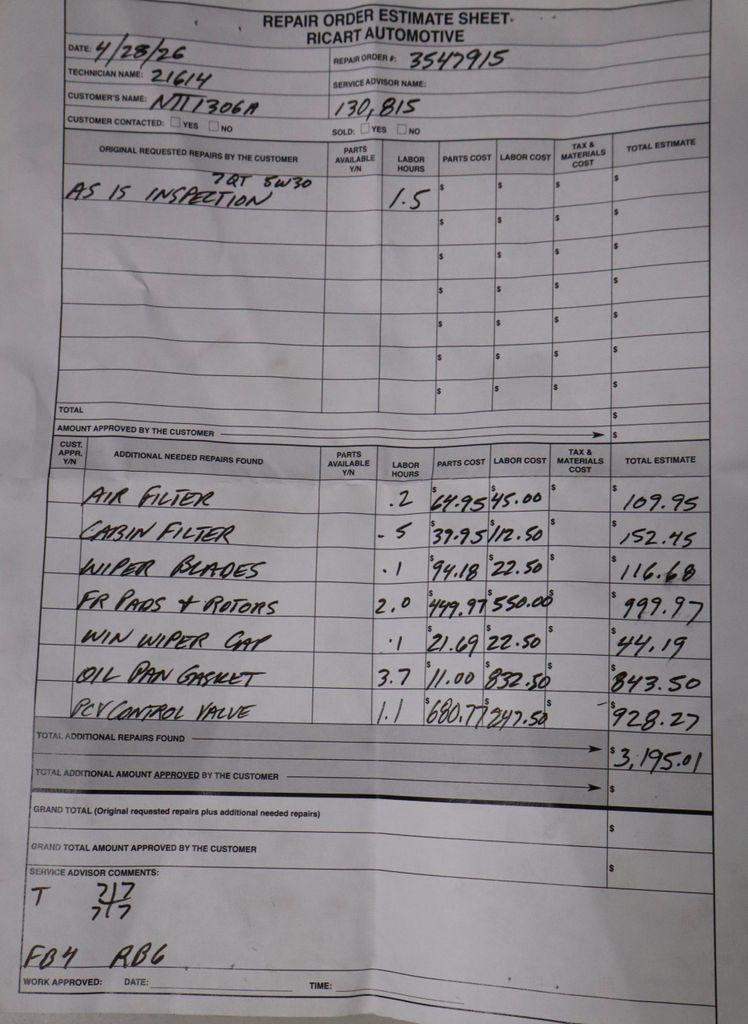 REPAIR ORDER ESTIMATE SHEET
RICART AUTOMOTIVE
DATE: 4/28/26 REPAIR ORDER #: 3547915
TECHNICIAN NAME: 21614 SERVICE ADVISOR NAME:
CUSTOMER'S NAME: NTT1306A 130,815
CUSTOMER CONTACTED: YES NO SOLD: YES NO
ORIGINAL REQUESTED REPAIRS BY THE CUSTOMER PARTS AVAILABLE Y/N LABOR HOURS PARTS COST LABOR COST TAX & MATERIALS COST TOTAL ESTIMATE
7 QT 5W30
AS IS INSPECTION 1.5 $ $ $ $
$ $ $ $
$ $ $ $
$ $ $ $
$ $ $ $
$ $ $ $
$ $ $ $
TOTAL $
AMOUNT APPROVED BY THE CUSTOMER $
CUST. APPR. Y/N ADDITIONAL NEEDED REPAIRS FOUND PARTS AVAILABLE Y/N LABOR HOURS PARTS COST LABOR COST TAX & MATERIALS COST TOTAL ESTIMATE
AIR FILTER .2 $64.95 $45.00 $ $109.95
CABIN FILTER .5 $39.95 $112.50 $ $152.45
WIPER BLADES .1 $94.18 $22.50 $ $116.68
FR PADS + ROTORS 2.0 $449.97 $550.00 $ $999.97
WIN WIPER CAP .1 $21.69 $22.50 $ $44.19
OIL PAN GASKET 3.7 $11.00 $832.50 $ $843.50
PCV CONTROL VALVE 1.1 $680.77 $247.50 $ $928.27
TOTAL ADDITIONAL REPAIRS FOUND $3,195.01
TOTAL ADDITIONAL AMOUNT APPROVED BY THE CUSTOMER $
GRAND TOTAL (Original requested repairs plus additional needed repairs) $
GRAND TOTAL AMOUNT APPROVED BY THE CUSTOMER $
SERVICE ADVISOR COMMENTS:
T 7|7
7|7
FB4 RB6
WORK APPROVED: DATE: TIME: